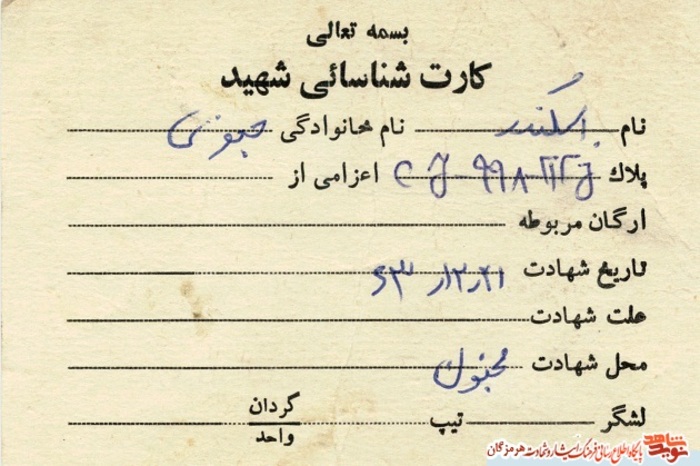 بسمه تعالی
کارت شناسائی شهید
نام اسکندر نام خانوادگی
پلاك اعزامی از
ارگان مربوطه
تاریخ شهادت ۶۳/۱۲/۲۱
علت شهادت
محل شهادت مجنون
لشگر تیپ گردان
واحد
شاهد نوید پایگاه اطلاع رسانی فرهنگ ایثار و شهادت هرمزگان